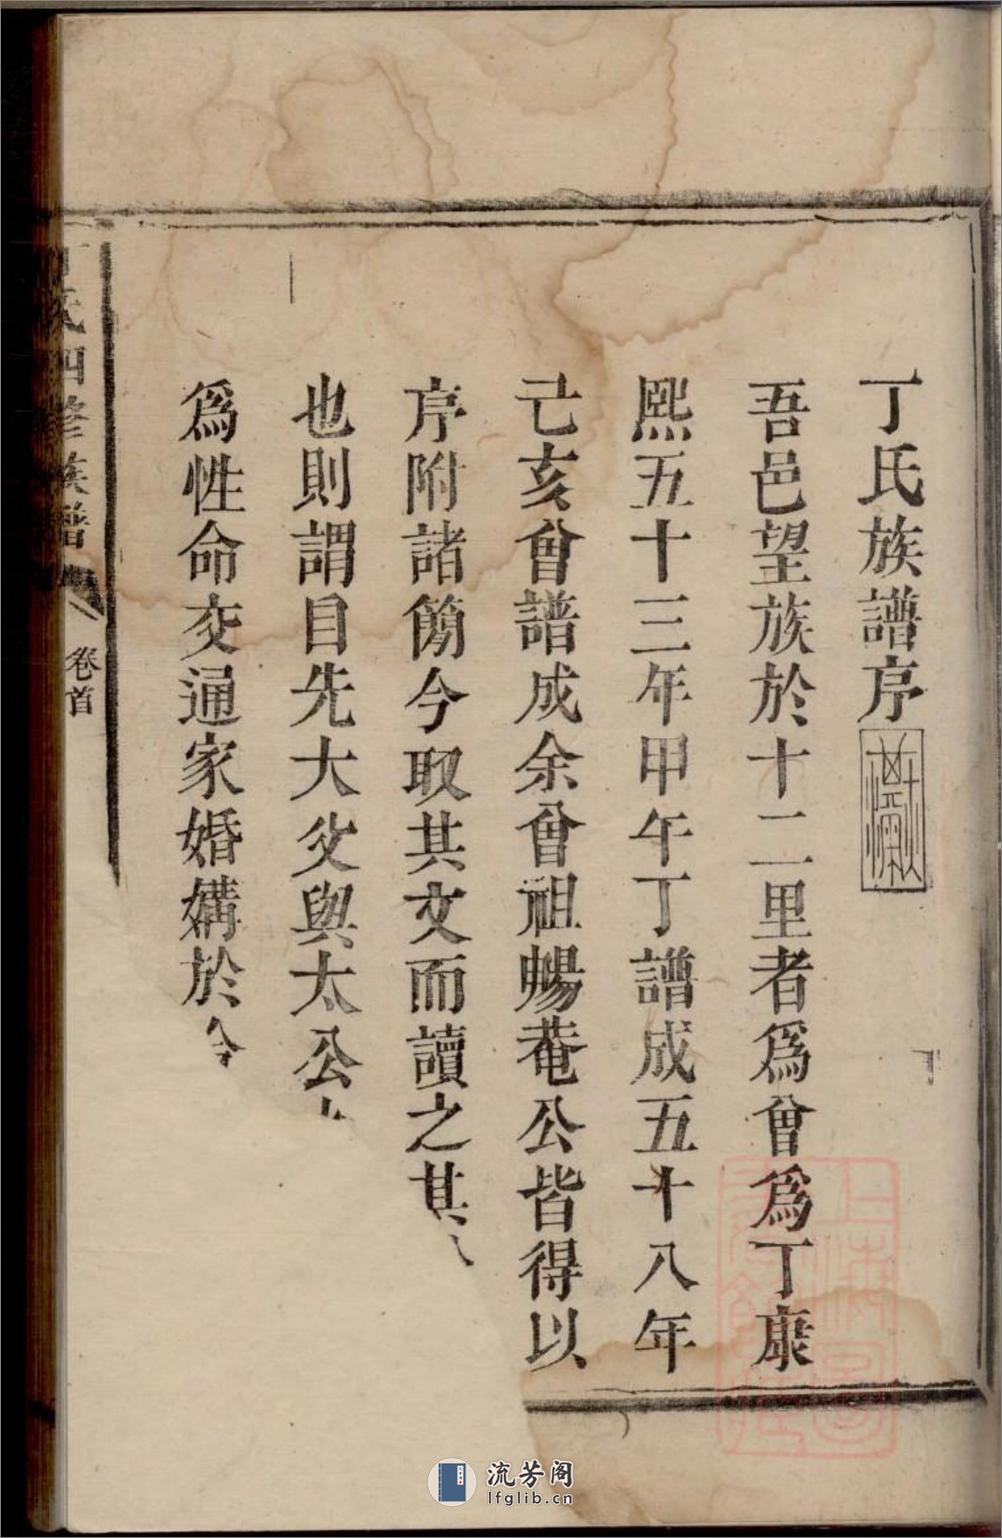 丁氏族譜序
吾邑望族於十二里者爲曾爲丁康
熙五十三年甲午丁譜成五十八年
己亥曾譜成余曾祖暢菴公皆得以
序附諸簡今取其文而讀之其
也則謂目先大父與太公
爲性命交通家婚媾於今
氏四修族譜
卷首
流芳阁
lfglib.cn